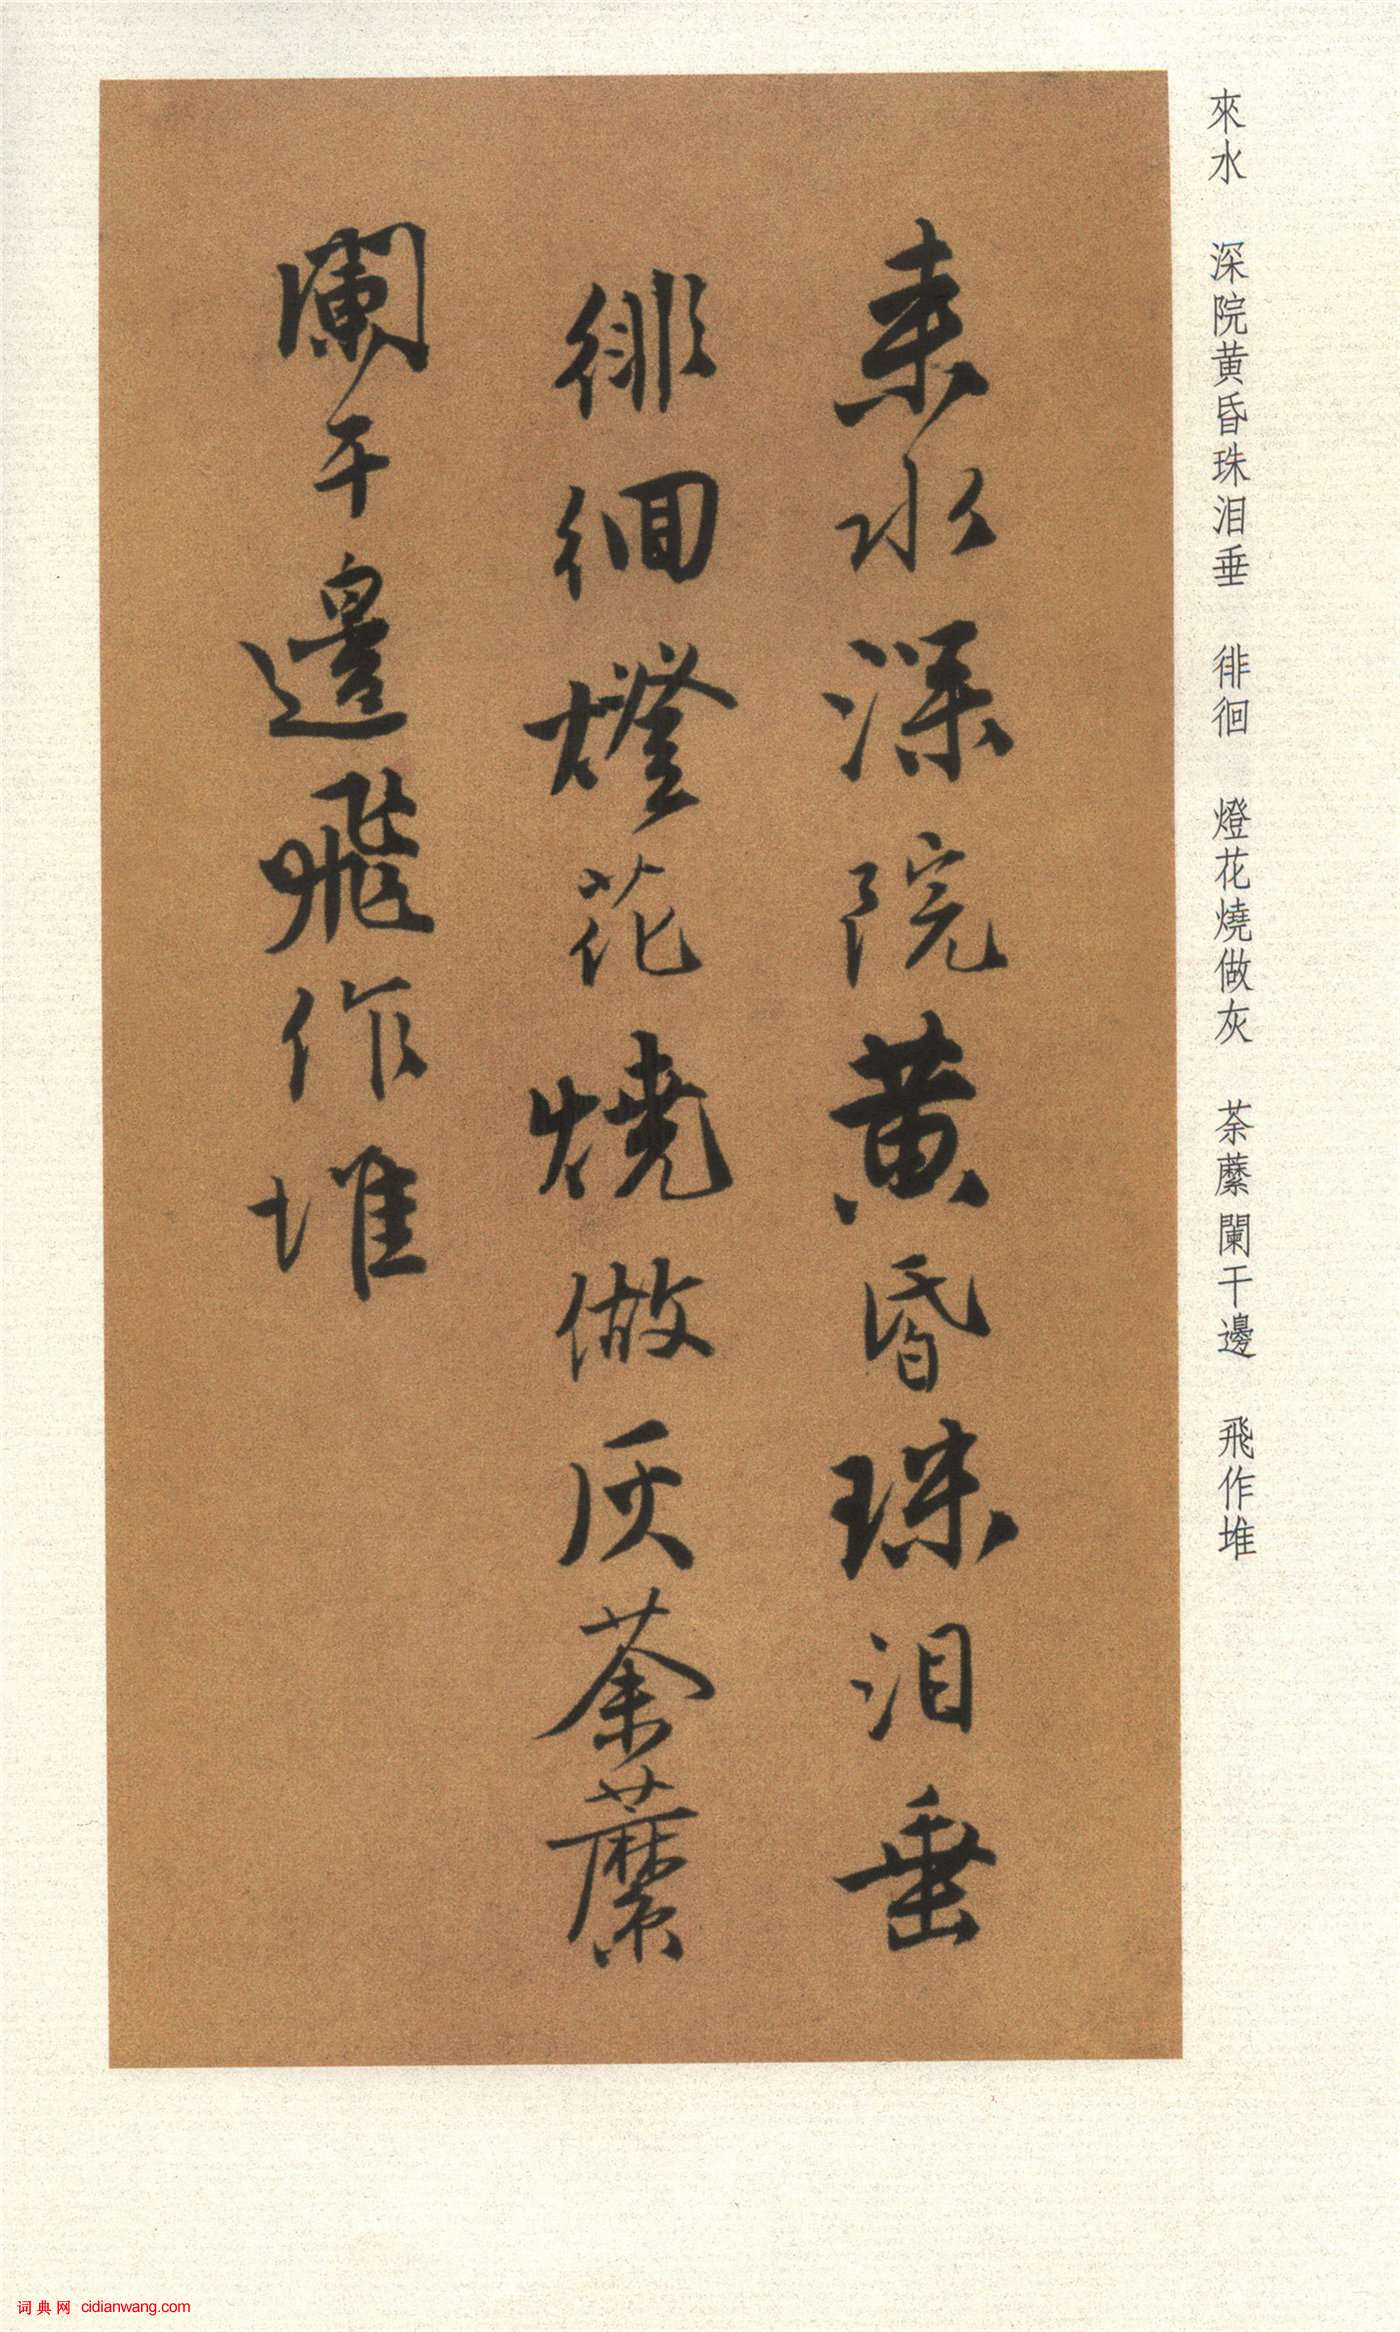 來水　深院黄昏珠泪垂　徘徊　燈花燒做灰　荼蘼闌干邊　飛作堆
來水深院黄昏珠泪垂
徘徊燈花燒做灰荼蘼
闌干邊飛作堆
词典网 cidianwang.com